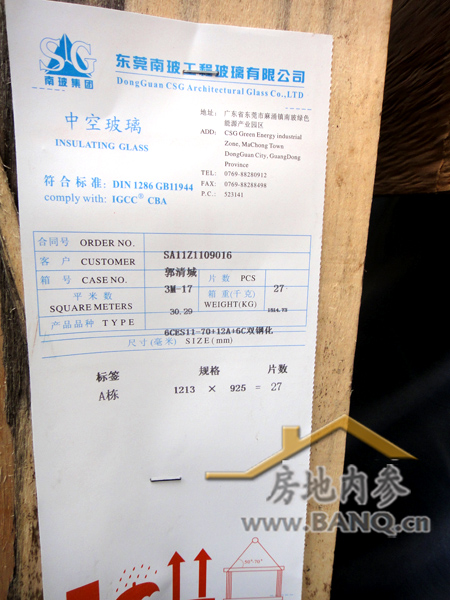 SG
南玻集团
东莞南玻工程玻璃有限公司
DongGuan CSG Architectural Glass Co.,LTD
中空玻璃
INSULATING GLASS
地址: 广东省东莞市麻涌镇南玻绿色
能源产业园区
ADD: CSG Green Energy industrial
Zone, MaChong Town
DongGuan City, GuangDong
Province
TEL: 0769-88280912
FAX: 0769-88288498
P.C.: 523141
符合标准: DIN 1286 GB11944
comply with: IGCC® CBA
合同号 ORDER NO. SA11Z1109016
客户 CUSTOMER 郭清城
箱号 CASE NO. 3M-17 片数 PCS 27
平米数
SQUARE METERS 30.29 箱重(千克)
WEIGHT(KG)
产品品种 TYPE 6CES11-70+12A+6C双钢化
尺寸(毫米) SIZE(mm)
标签 规格 片数
A栋 1213 × 925 = 27
房地内参
www.BANQ.cn